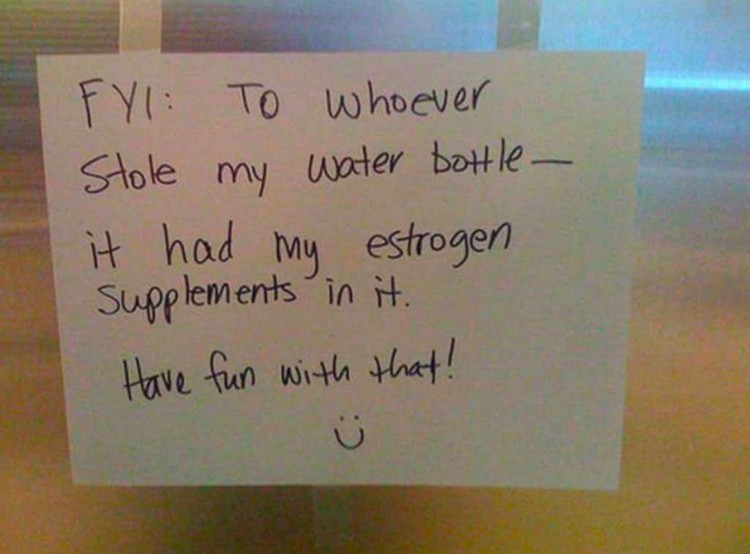 FYI: To whoever
Stole my water bottle—
it had my estrogen
supplements in it.
Have fun with that!